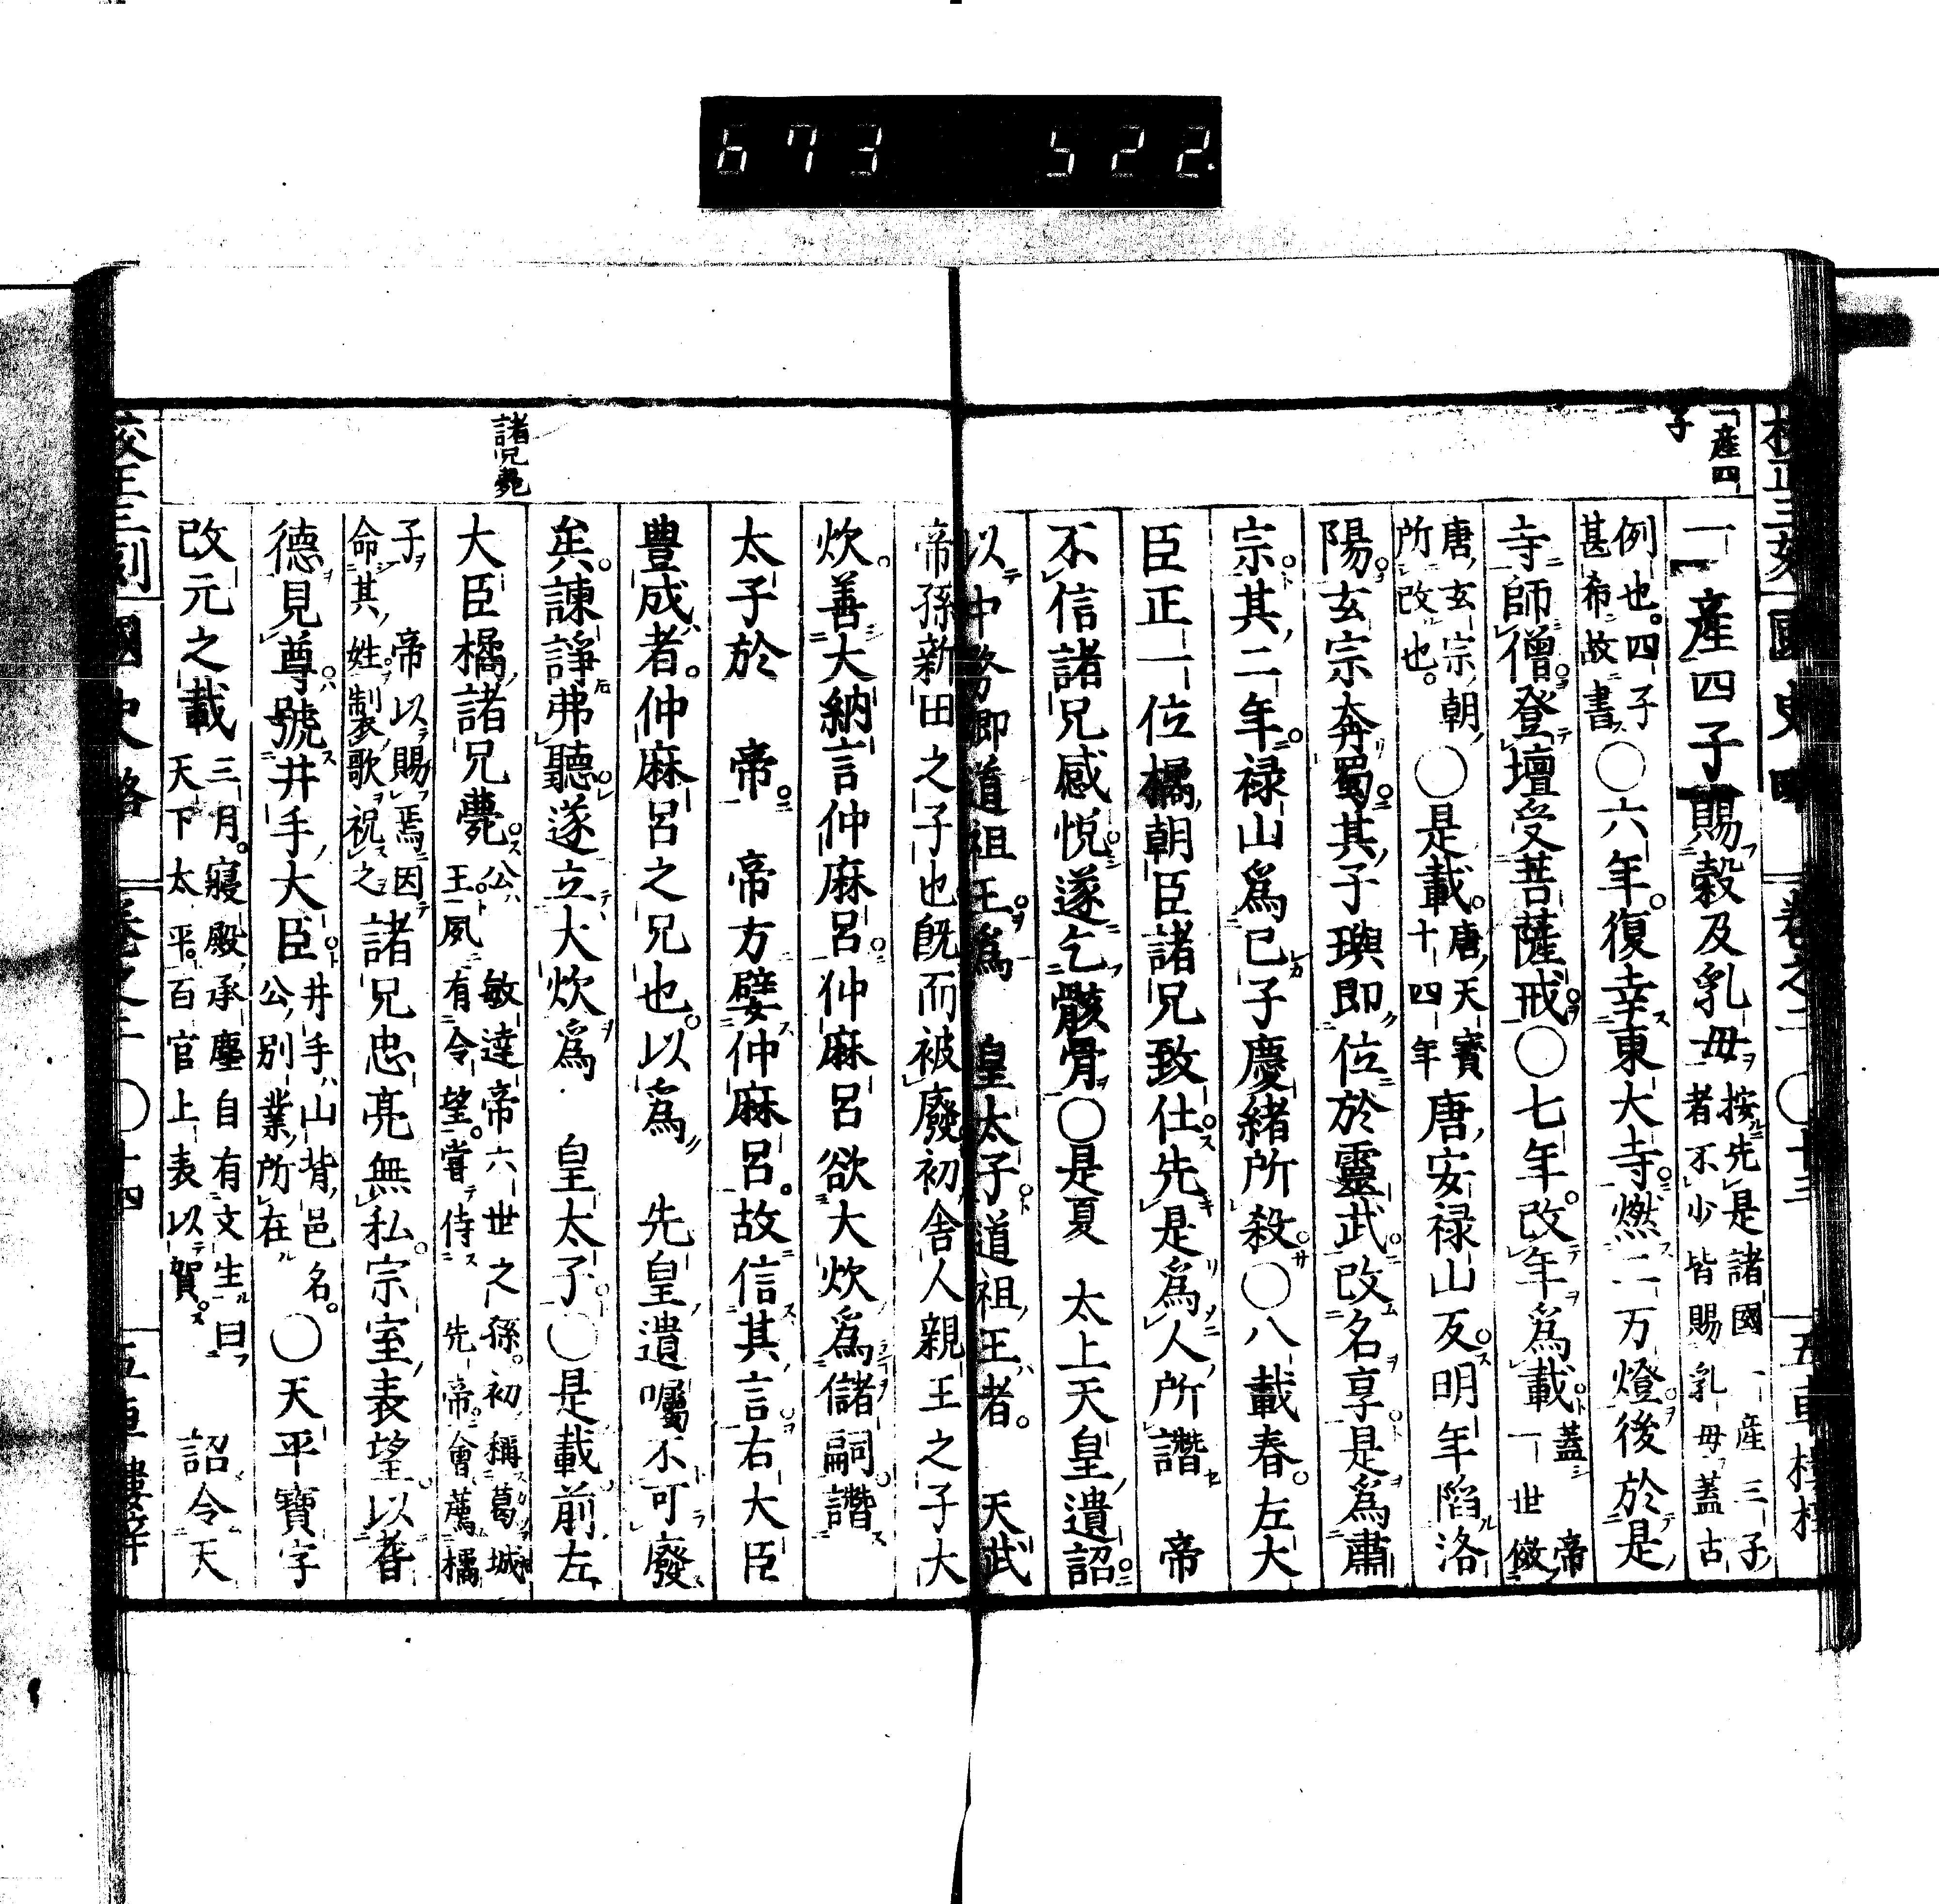 673 522
校正三刻 國史略 卷之二 〇十三 五車樓梓
一産四子
一産四子賜穀及乳母 按先是諸國一産三子者不少皆賜乳母蓋古
例也四子甚希故書 〇六年復幸東大寺燃二万燈後於是
寺師僧登壇受菩薩戒〇七年改年爲載 蓋 帝一世倣
唐玄宗朝所改也 〇是載 唐天寶十四年 唐安禄山反明年陷洛
陽玄宗奔蜀其子璵即位於靈武改名享是爲肅
宗其二年禄山爲已子慶緒所殺〇八載春左大
臣正一位橘朝臣諸兄致仕先是爲人所譖 帝
不信諸兄感悦遂乞骸骨〇是夏 太上天皇遺詔
以中務卿道祖王爲 皇太子道祖王者 天武
帝孫新田之子也旣而被廢初舍人親王之子大
炊善大納言仲麻呂仲麻呂欲大炊爲儲嗣譖
太子於 帝 帝方嬖仲麻呂故信其言右大臣
豊成者仲麻呂之兄也以爲 先皇遺囑不可廢
矣諫諍弗聽遂立大炊爲 皇太子〇是載前左
諸兄薨
大臣橘諸兄薨 公敏達帝六世之孫初稱葛城王夙有令望嘗侍 先帝會薦橘
子 帝以賜焉因命其姓製歌祝之 諸兄忠亮無私宗室表望以耆
德見尊號井手大臣 井手山背邑名公別業所在 〇天平寶字
改元之載 三月寢殿承塵自有文生曰天下太平百官上表以賀 詔令天
校正三刻 國史略 卷之二 〇十四 五車樓梓